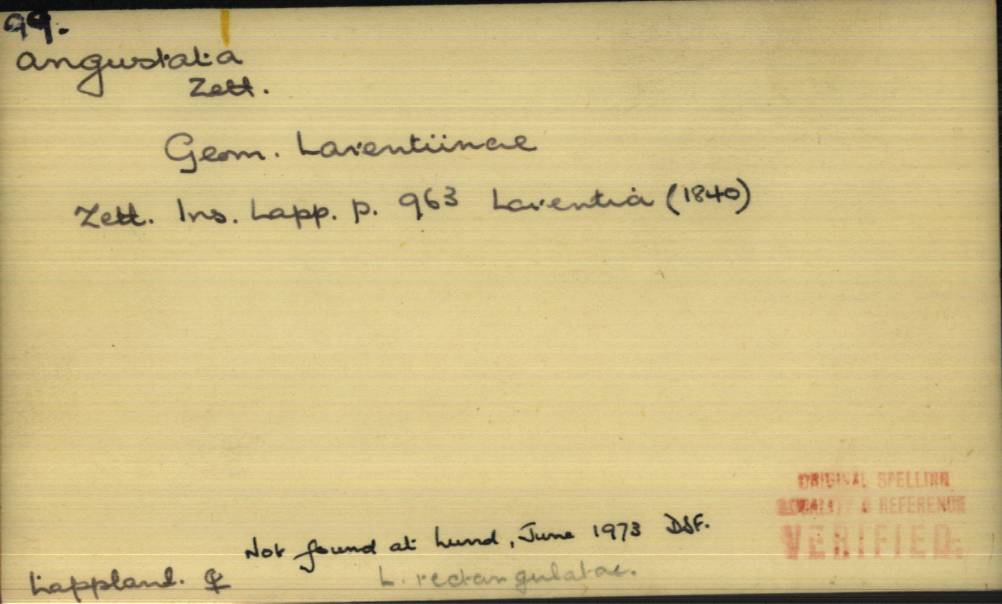 99.
angustata
Zett.
Geom. Larentiinae
Zett. Ins. Lapp. p. 963 Larentia (1840)
ORIGINAL SPELLING
LOCALITY & REFERENCE
VERIFIED.
Not found at Lund, June 1973 DSF.
Lappland. ♀
L. rectangulatae.